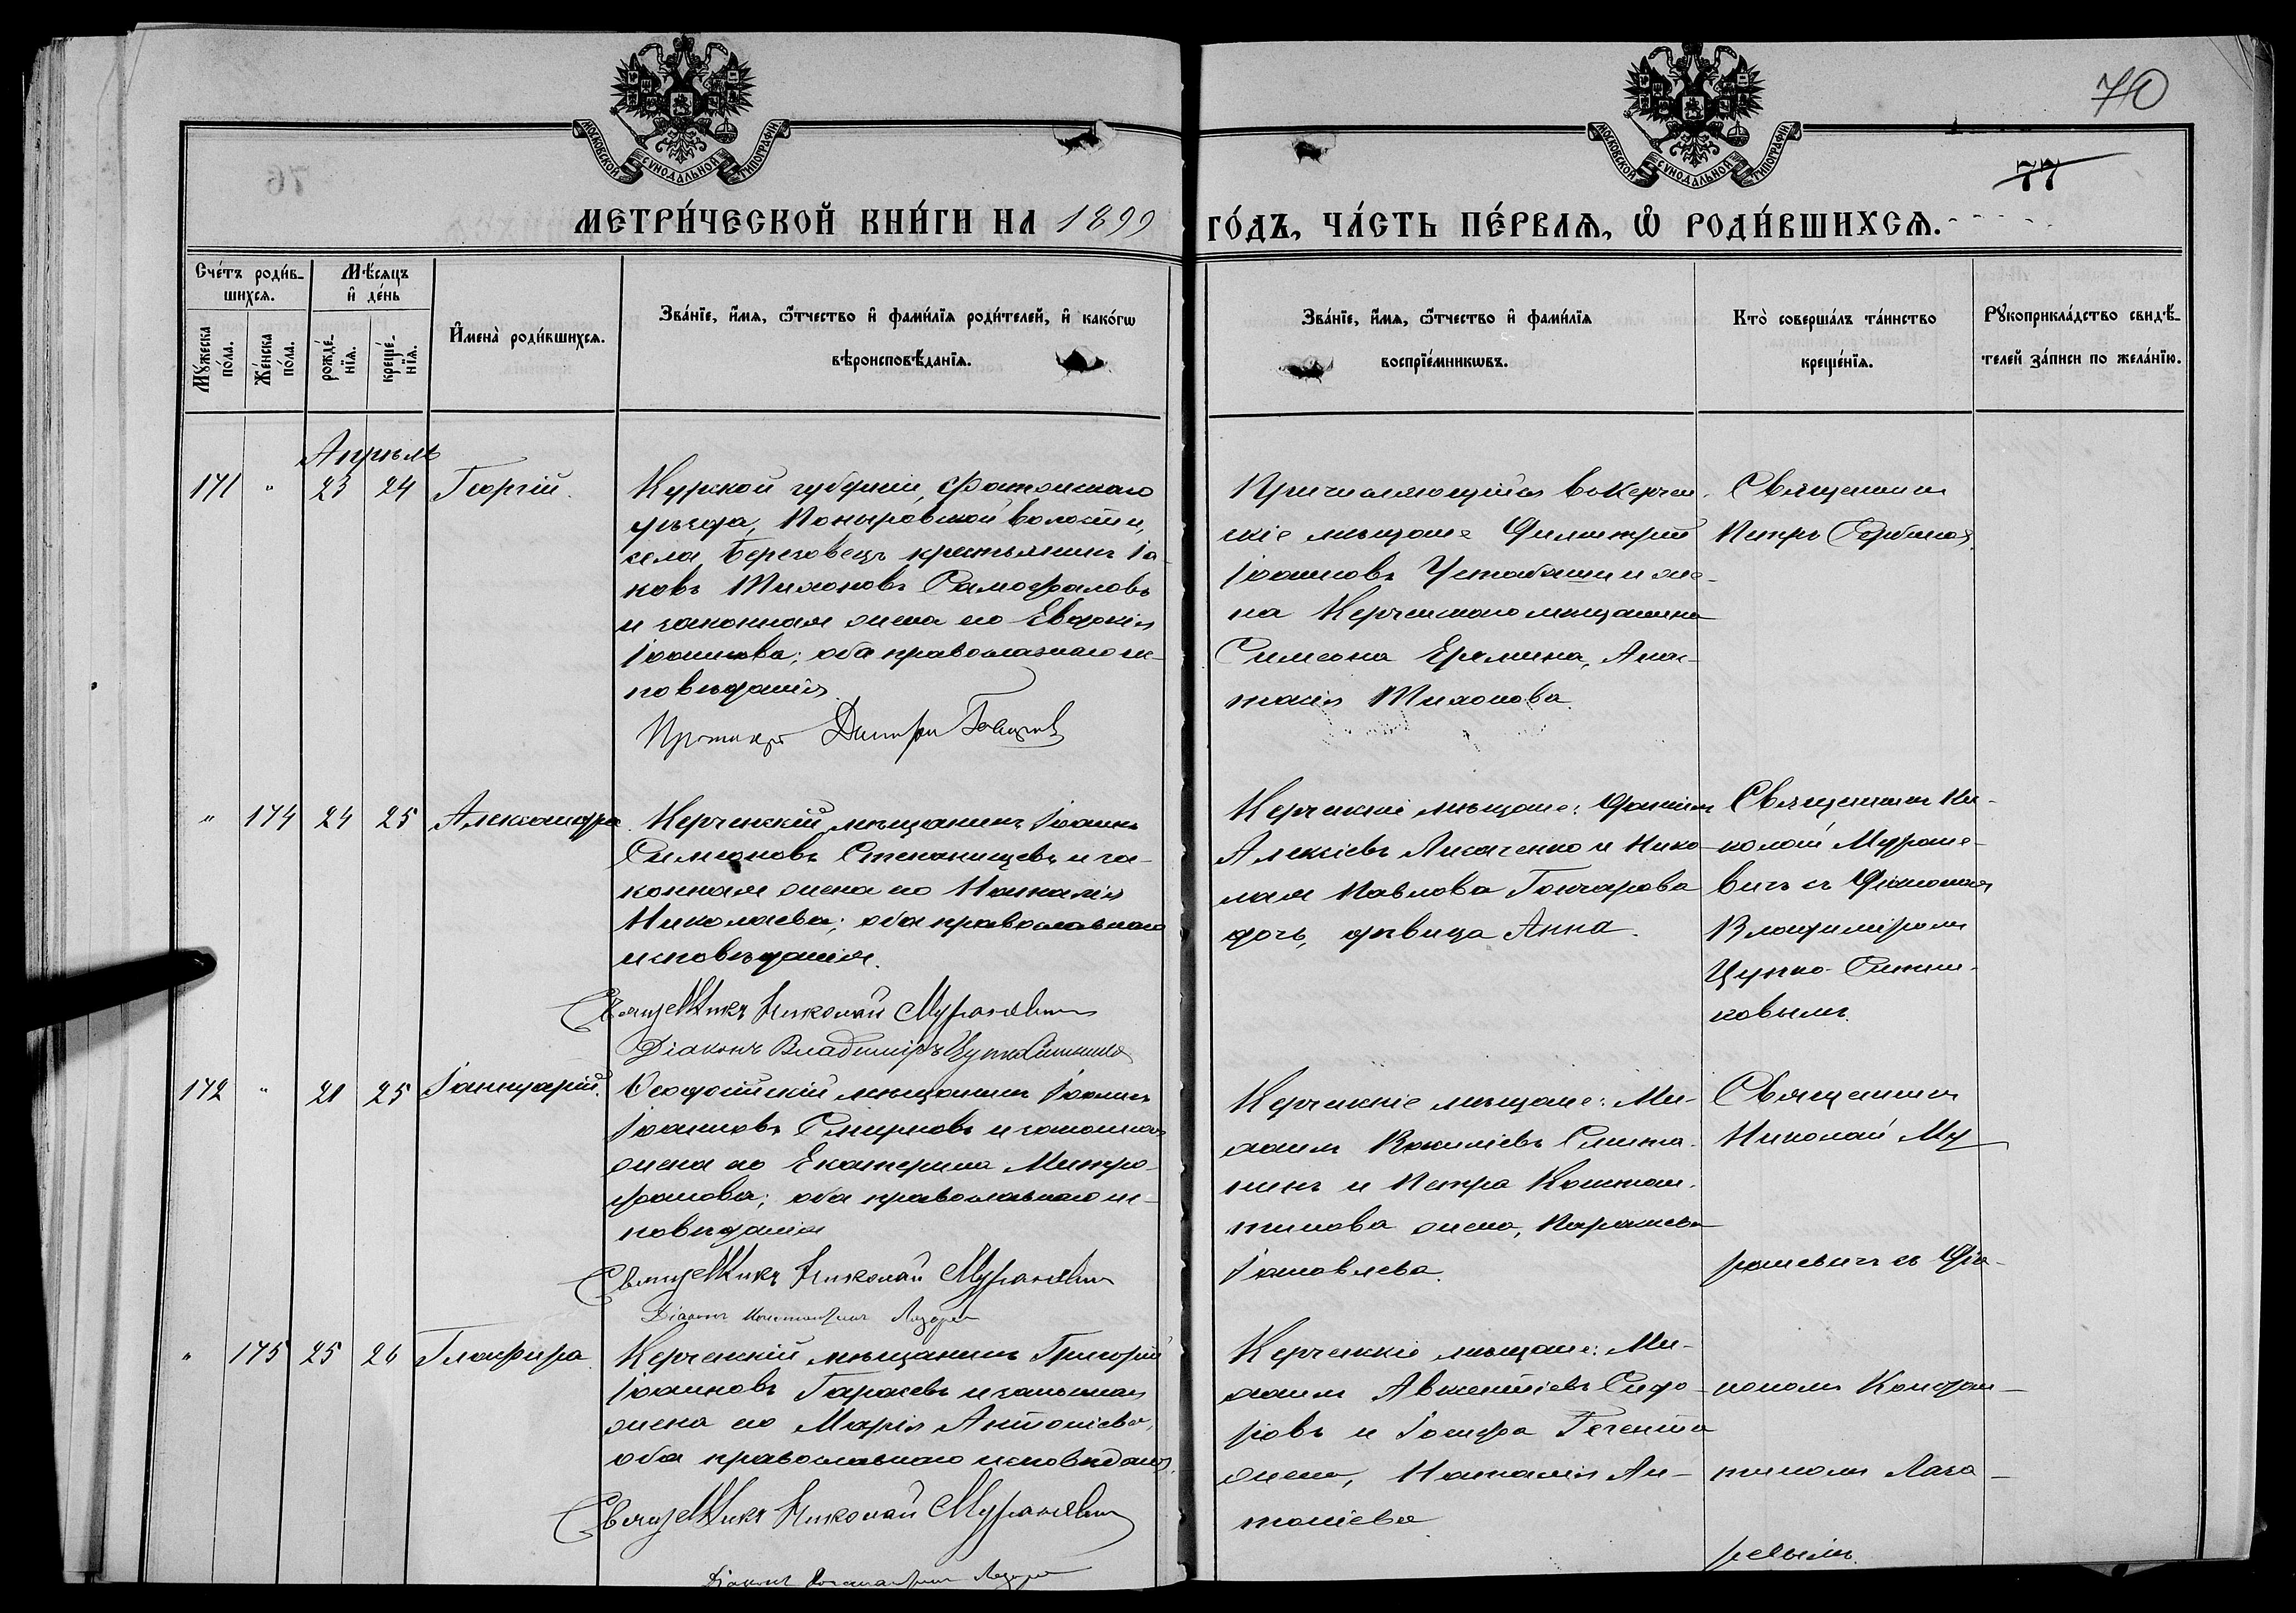 70
МОСКОВСКОЙ СѴНОДАЛЬНОЙ ТИПОГРАФІИ
МОСКОВСКОЙ СѴНОДАЛЬНОЙ ТИПОГРАФІИ
76
77
МЕТРИ́ЧЕСКОЙ КНИ́ГИ НА 1899 ГО́ДЪ, ЧА́СТЬ ПЕ́РВАѦ, Ѡ҆ РОДИ́ВШИХСѦ.
Сче́тъ роди́в-
шихсѧ.
Мѣ́сѧцъ
и҆ де́нь
Мꙋ́жеска
по́ла.
Же́нска
по́ла.
рожде́-
нїѧ.
креще́-
нїѧ.
И҆мена̀ роди́вшихсѧ.
Зва́нїе, и҆́мѧ, ѻ҆́тчество и҆ фами́лїѧ роди́телей, и҆ како́гѡ
вѣроисповѣ́данїѧ.
Зва́нїе, и҆́мѧ, ѻ҆́тчество и҆ фами́лїѧ
воспрїе́мникѡвъ.
Кто̀ соверша́лъ та́инство
креще́нїѧ.
Рꙋкоприкла́дство свидѣ́-
телей за́писи по жела́нїю.
Апрѣль
171 " 23 24 Георгій.
Курской губерніи, Фатежскаго
уѣзда, Поныровской волости,
села Березовецъ крестьянинъ Іа-
ковъ Тихоновъ Самофаловъ
и законная жена его Евдокія
Іоаннова; оба православнаго ис-
повѣданія.
Димитрій
Причисляющійся въ Керчен-
скіе мѣщане Димитрій
Іоанновъ Устабаши и же-
на Керченскаго мѣщанина
Симеона Еремина, Анас-
тасія Тихонова.
Священникъ
Петръ Сербиновъ.
" 174 24 25 Александра.
Керченскій мѣщанинъ Іоаннъ
Симеоновъ Степанищевъ и за-
конная жена его Наталія
Николаева; оба православнаго
исповѣданія.
Священникъ Николай Мураневичъ
Діаконъ Владиміръ Цупко-Ситников
Керченскіе мѣщане: Даніилъ
Алексіевъ Лисаченко и Нико-
лая Павлова Гончарова
дочь, дѣвица Анна.
Священникъ Ни-
колай Муране-
вичъ съ Діакономъ
Владиміромъ
Цупко-Ситни-
ковымъ.
172 " 21 25 Іаннуарій.
Ѳеодосійскій мѣщанинъ Іоаннъ
Іоанновъ Смирновъ и законная
жена его Екатерина Митро-
фанова; оба православнаго ис-
повѣданія
Священникъ Николай Мураневичъ
Діаконъ Константинъ Лазарев
Керченскіе мѣщане: Ми-
хаилъ Василіевъ Смета-
нинъ и Петра Констан-
тинова жена, Параскева
Іаковлева.
Священникъ
Николай Му-
раневичъ съ Діа-
" 175 25 26 Глафира.
Керченскій мѣщанинъ Григорій
Іоанновъ Гарасевъ и законная
жена его Марія Антоніева,
оба православнаго исповѣданія.
Священникъ Николай Мураневичъ
Діаконъ Константинъ Лазарев
Керченскіе мѣщане: Ми-
хаилъ Авксентіевъ Сидо-
ровъ и Іосифа Гегента
жена, Наталія Ан-
тоніева
кономъ Констан-
тиномъ Лаза-
ревымъ.